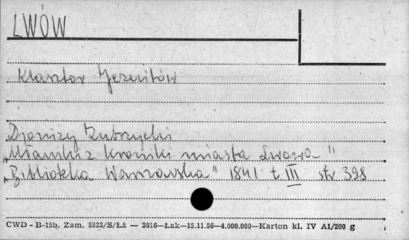 LWÓW
Klasztor Jezuitów
Dionizy Zubrzycki
"Ułamki z kroniki miasta Lwowa"
"Biblioteka Warszawska" 1841 t III str 398
CWD - B-15b. Zam. 5322/S/Łź — 3016—Łak—15.11.56—4.000.000—Karton kl. IV A1/200 g